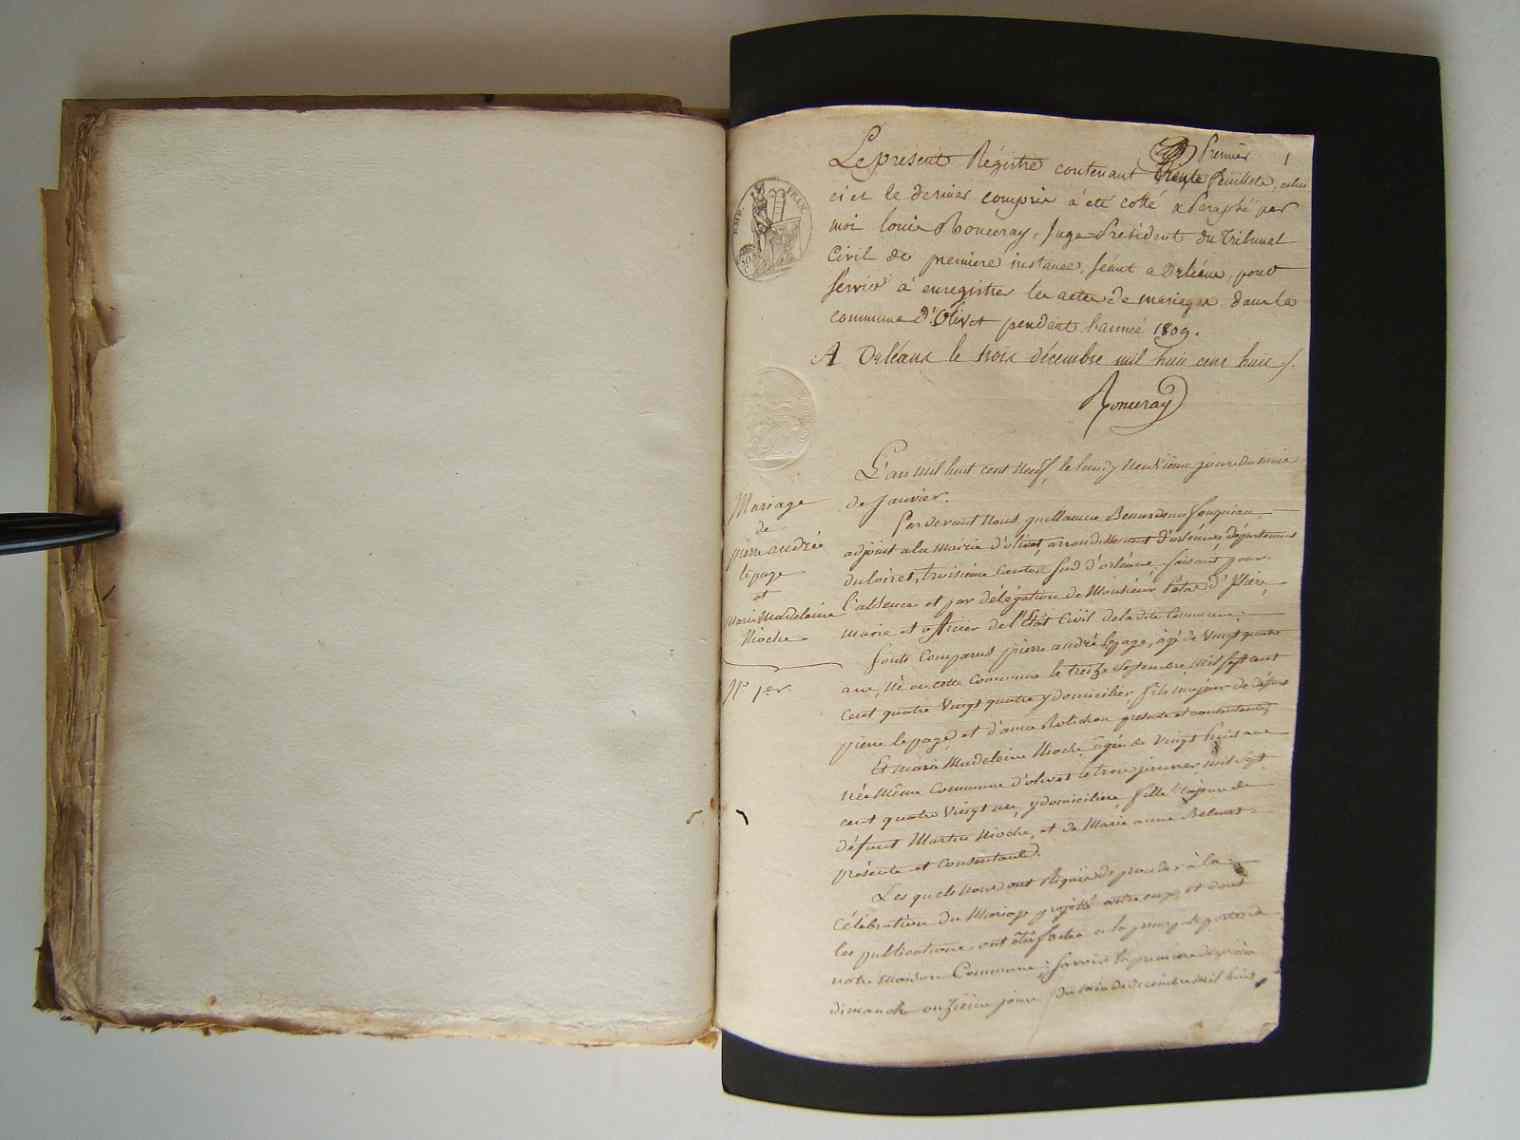 Premier
1
Le present Régistre contenant trente feuillets, celui
ci et le dernier compris à été cotté & paraphé par
moi Louis Ronceray, Juge President du Tribunal
Civil de premiere instance, séant a Orléans, pour
servir à enregistrer les actes de mariages dans la
commune d'Olivet pendant l'année 1809.
A Orléans le trois décembre mil huit cent huit /.
Ronceray
EMP. FRAN.
L'an mil huit cent neuf, le lundy neuvième jour du mois
de Janvier.
Mariage
de
pierre andré
lepage
et
Marie Madeleine
Nioche
N° 1er.
Par devant Nous, guillaume
adjoint a la mairie d'olivet, arrondissement d'orléans, département
du loiret, troisième Canton sud d'orléans, faisant pour
l'absence et par délégation de Monsieur
Maire et officier de l'Etat Civil de la dite Commune;
sont Comparus pierre andré lepage, âgé de Vingt quatre
ans, né en cette Commune le treize Septembre, mil sept cent
cent quatre Vingt quatre y domicilier fils majeur de défunt
pierre lepage, et d'anne présente et consentante;
Et marie Madeleine Nioche, agée de Vingt huit ans
née même Commune d'olivet le trois janvier, mil sept
cent quatre Vingt un, y domicilière fille majeure de
défunt Martin Nioche, et de Marie anne
présente et consentante.
Les quels nous ont Requis de proceder à la
Célébration du Mariage projetté entre eux, et dont
les publications ont été faites a la principale porte de
notre Maison Commune; savoir la premiere
dimanche onzième jour du mois de decembre mil huit